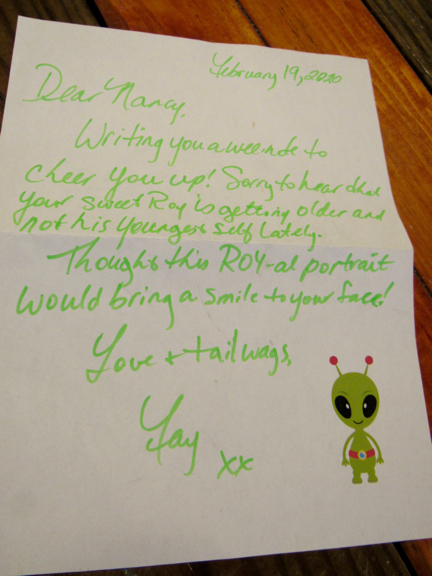 February 19, 2010
Dear Nancy,
Writing you a wee note to
cheer you up! Sorry to hear that
your sweet Roy is getting older and
not his youngest self lately.
Thought this ROY-al portrait
would bring a smile to your face!
Love + tail wags,
Fay xx